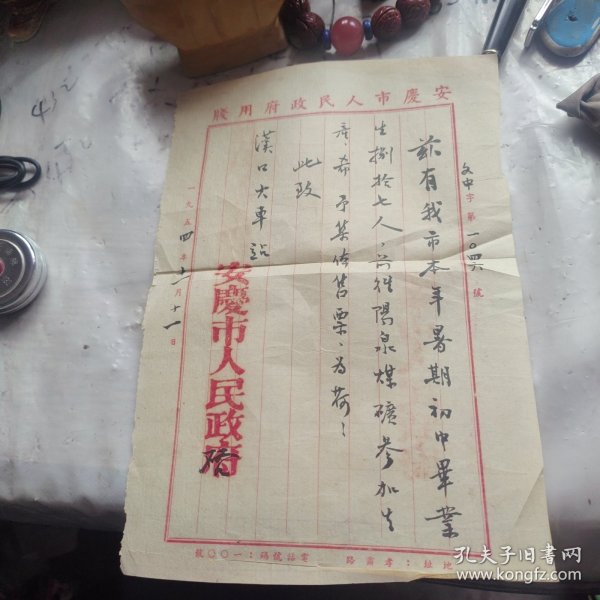 安慶市人民政府用牋
文中字第一〇四六號
茲有我市本年暑期初中畢業
生捌拾七人，前往陽泉煤礦參加生
產希予某售票，為荷！
此致
漢口大車站
安慶市人民政府
一九五四年十一月十一日
地址：孝肅路 電話號碼：一〇〇號
孔夫子旧书网
www.kongfz.com